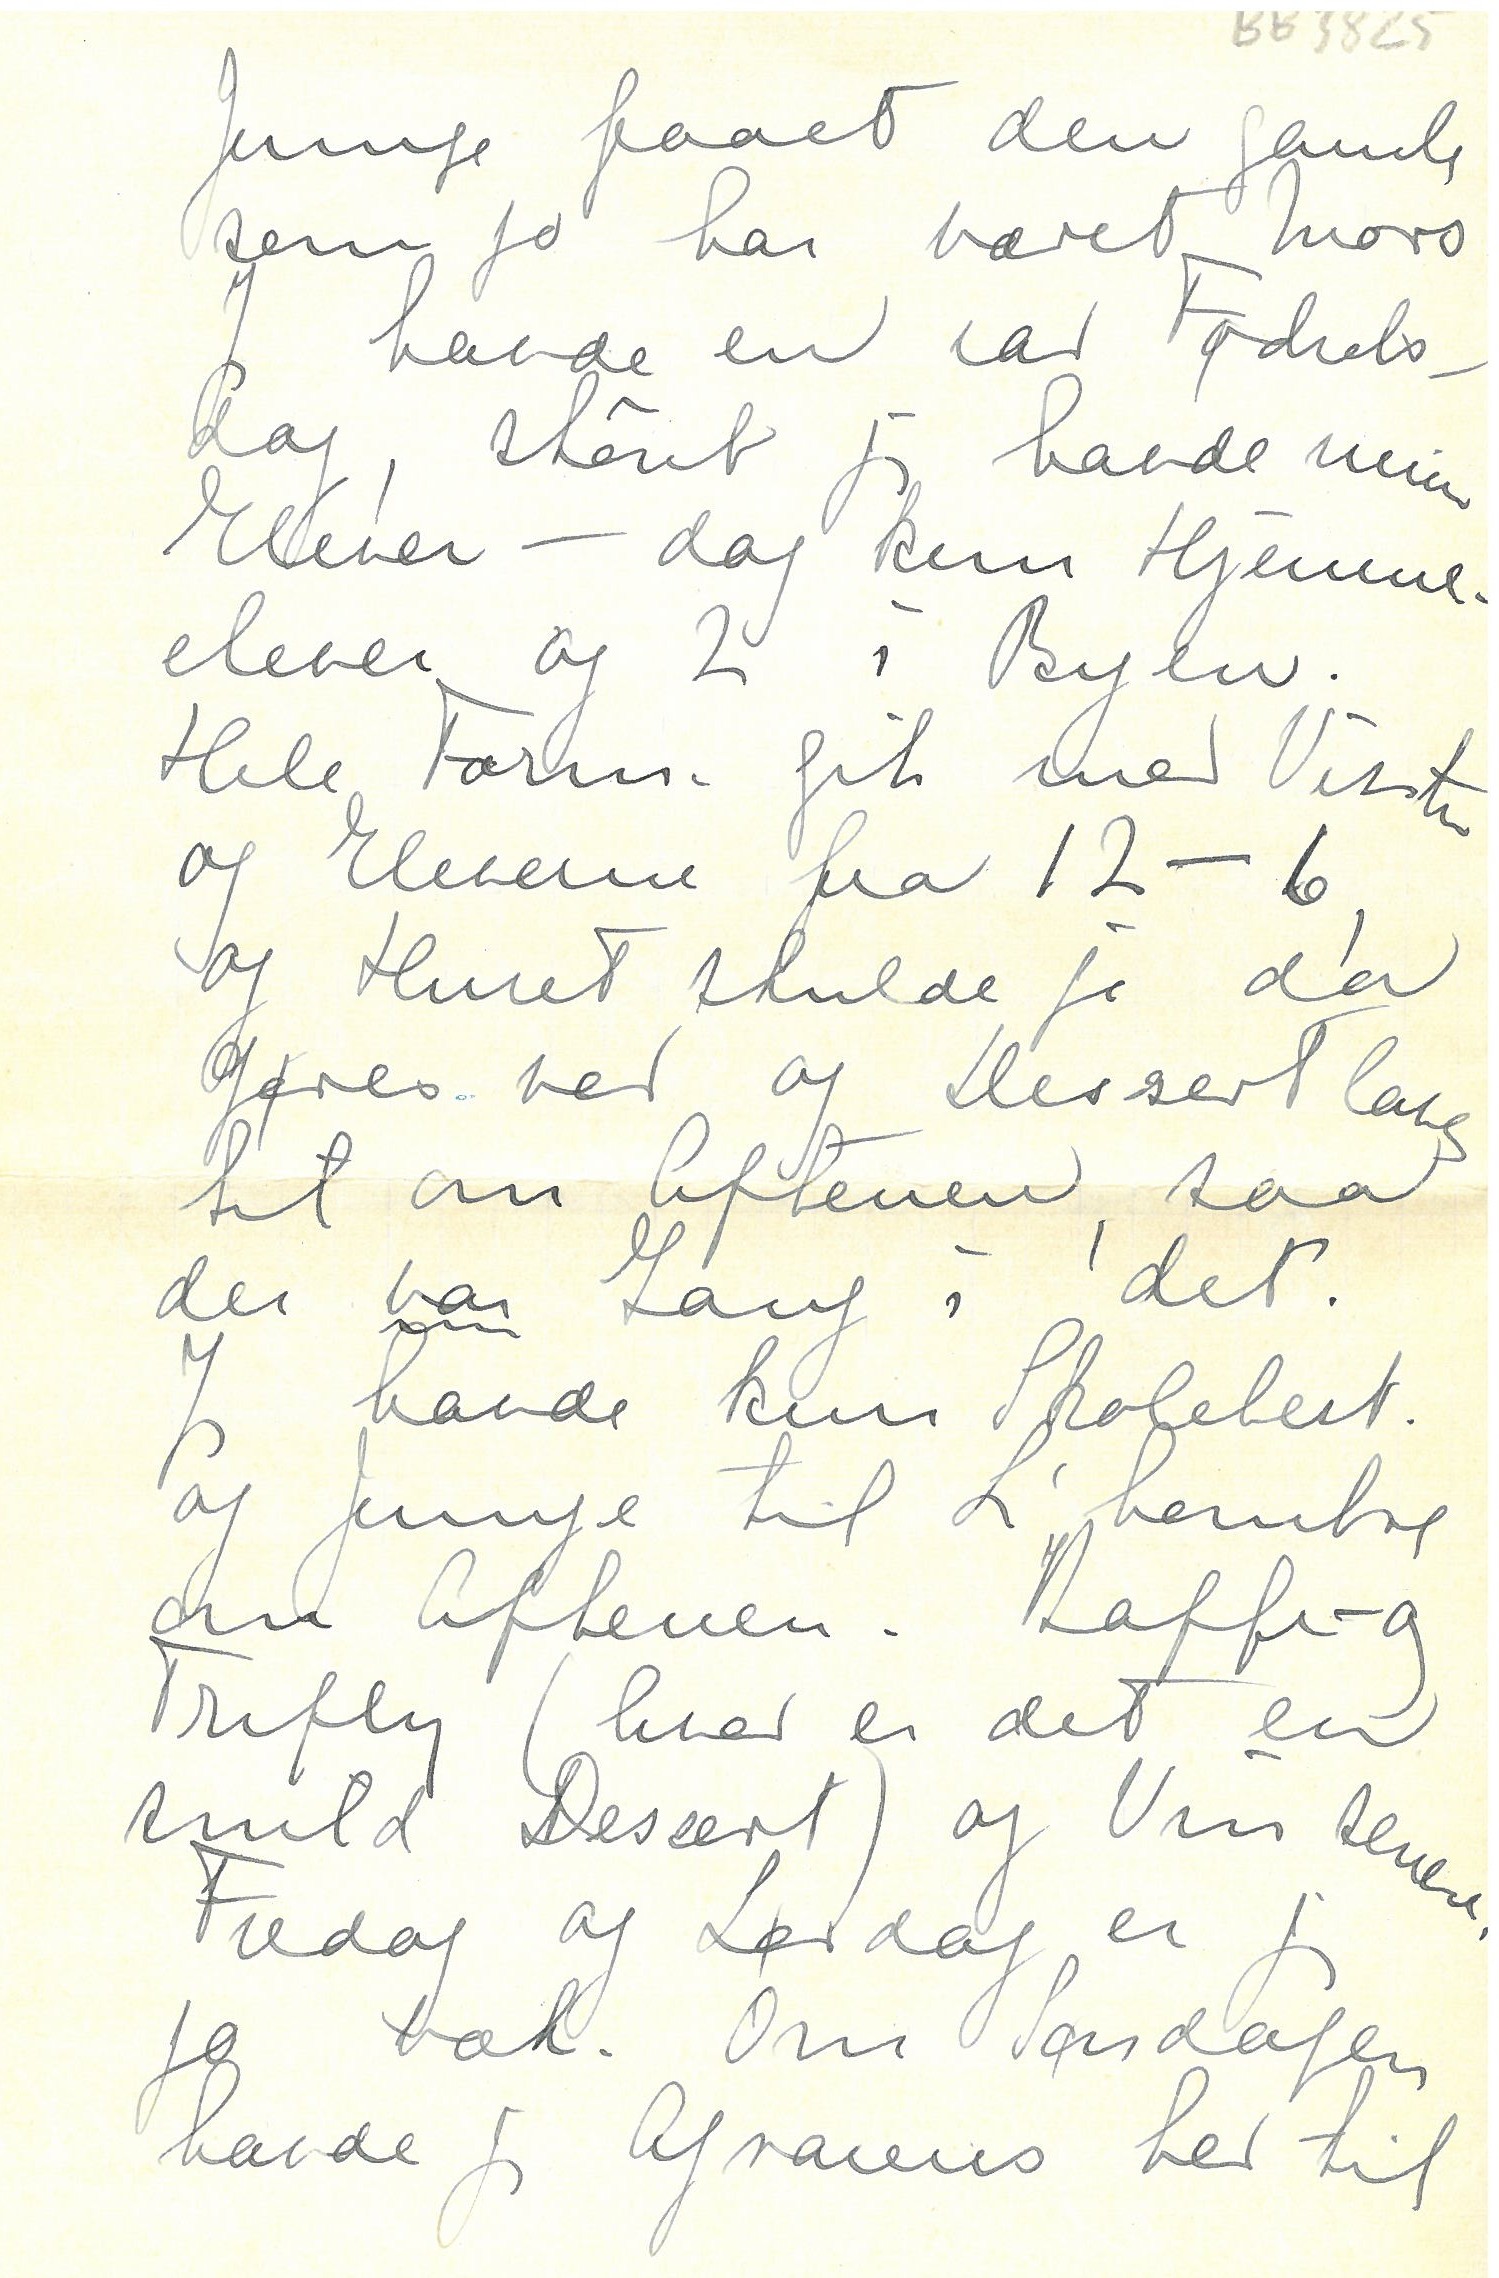 BB3825
Junge faaet den gamle
som jo har været Mors
Jeg havde en rar Fødsels-
dag, skönt jeg havde mine
Elever – dog kun Hjemme-
elever og 2 i Byen.
Hele Form. gik med Visitter
og Eleverne fra 12 – 6,
og Huset skulde jo da
gøres ved og Dessert laves
til om Aftenen, saa
der var Gang i det.
Jeg havde kun Skolebest.
og Junge til L'hombre
om Aftenen. Kaffe – og
Trifly (hvad er det en
smild Dessert) og Vin senere.
Fredag og Lørdag er jeg
jo væk. Om Søndagen
havde jeg Agrarens her til